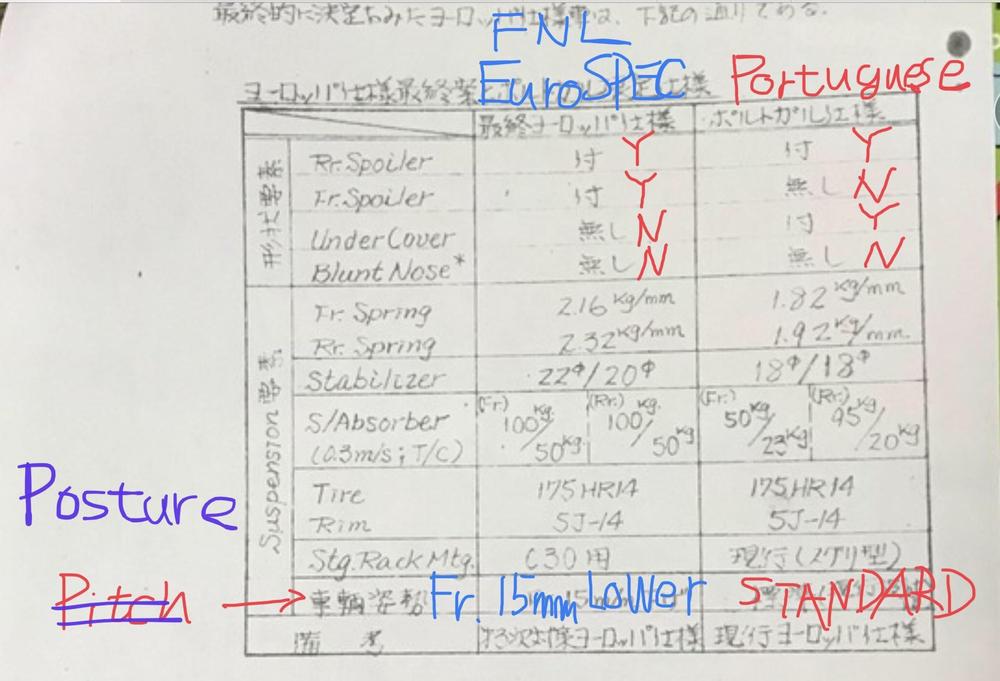 最終的に決定されたヨーロッパ仕様車は、下記の通りである.
FNL
EuroSPEC Portuguese
ヨーロッパ仕様最終案
最終ヨーロッパ仕様 ポルトガル仕様
形状要素
Rr.Spoiler 付 Y 付 Y
Fr.Spoiler 付 Y 無し N
Under Cover 無し N 付 Y
Blunt Nose* 無し N 無し N
Suspension 要素
Fr.Spring 2.16 kg/mm 1.82 kg/mm
Rr.Spring 2.32 kg/mm 1.92 kg/mm
Stabilizer 22φ/20φ 18φ/18φ
S/Absorber (Fr.) 100kg/50kg (Rr.) 100kg/50kg (Fr.) 50kg/23kg (Rr.) 95kg/20kg
(0.3m/s; T/C)
Tire 175HR14 175HR14
Rim 5J-14 5J-14
Stg.Rack Mtg. C30用 現行(
Posture
Pitch → 車輌姿勢 Fr. 15mm Lower STANDARD
備考 ヨーロッパ仕様 現行ヨーロッパ仕様